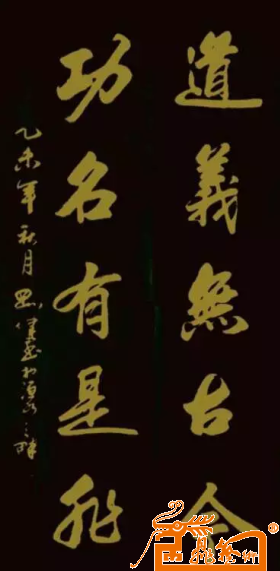 道義無古今
功名有是非
乙未年秋月